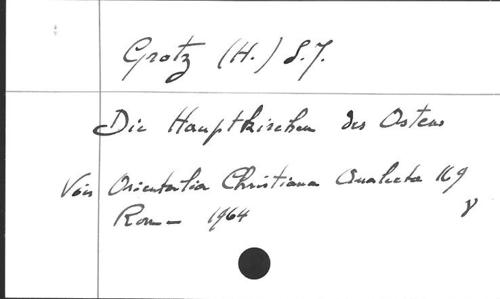 Grotz (H.) S.J.
Die Hauptkirchen des Ostens
Voir Orientalia Christiana Analecta 169
Rome 1964